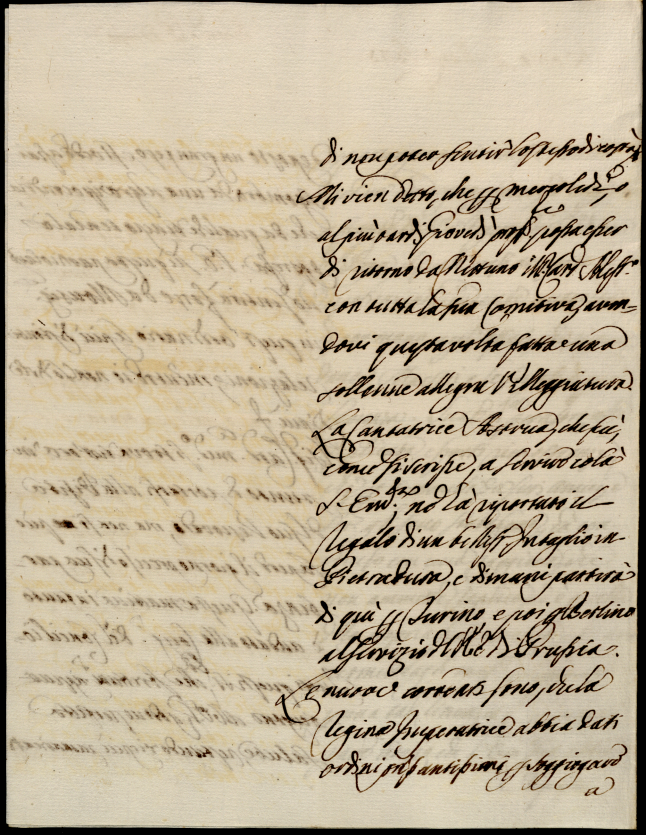 di non poco sentir lo stesso di costà
Mi vien detto, che p mercoledì, o
al più tardi Giovedì pross.º possa esser
di ritorno da Nettuno il Card. Aless.º
con tutta la sua Comitiva, aven-
dovi questa volta fatta una
sollenne allegra Villeggiatura.
La Cantatrice Astrua, che fù,
come si scrisse, a servire colà
S. Em.ª, ne hà riportato il
regalo di un belliss.º Intaglio in
Pietra dura, e dimani partirà
di quì p Turino e poi p Berlino
al Servizio del Rè di Prussia.
Le nuove correnti sono, che la
Regina Imperatrice abbia dati
ordini p soggiogare
a